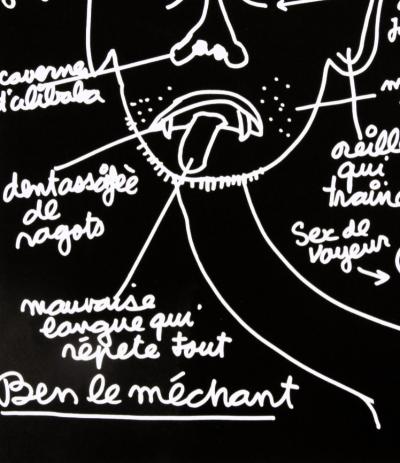 caverne
d'alibaba
dent assoifée
de
ragots
oreille
qui
traine
Sex de
voyeur
mauvaise
langue qui
répète tout
Ben le méchant